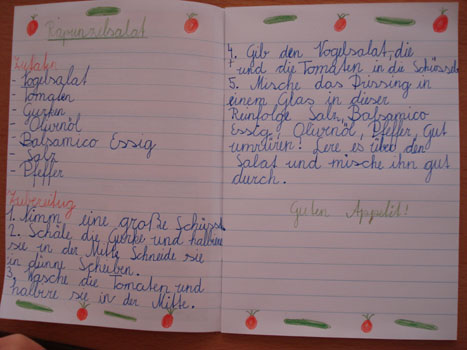 Rapunzelsalat
Zutaten
- Vogelsalat
- Tomaten
- Gurken
- Olivenöl
- Balsamico Essig
- Salz
- Pfeffer
Zubereitung
1. Nimm eine große Schüssel.
2. Schäle die Gurke und halbiere
sie in der Mitte. Schneide sie
in dünne Scheiben.
3. Wasche die Tomaten und
halbire sie in der Mitte.
4. Gib den Vogelsalat, die
und die Tomaten in die Schüssel.
5. Mische das Drissing in
einem Glas in dieser
Reinfolge Salz, Balsamico
Essig, Olivenöl, Pfeffer. Gut
umrüren! Lere es über den
Salat und mische ihn gut
durch.
Guten Appetit!